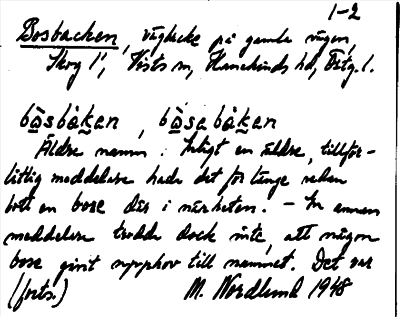 1-2
Bosbacken, vägbacke på gamla vägen,
Skog 1', Vists sn, Hanekinds hd, Östg. l.
bo̱sbàḵen, bo̱sabàḵen
Äldre namn. Enligt en äldre, tillför-
litlig meddelare hade det för länge sedan
bott en bose där i närheten. – En annan
meddelare trodde dock inte, att någon
bose givit upphov till namnet. Det var
(forts.) M. Nordlund 1948